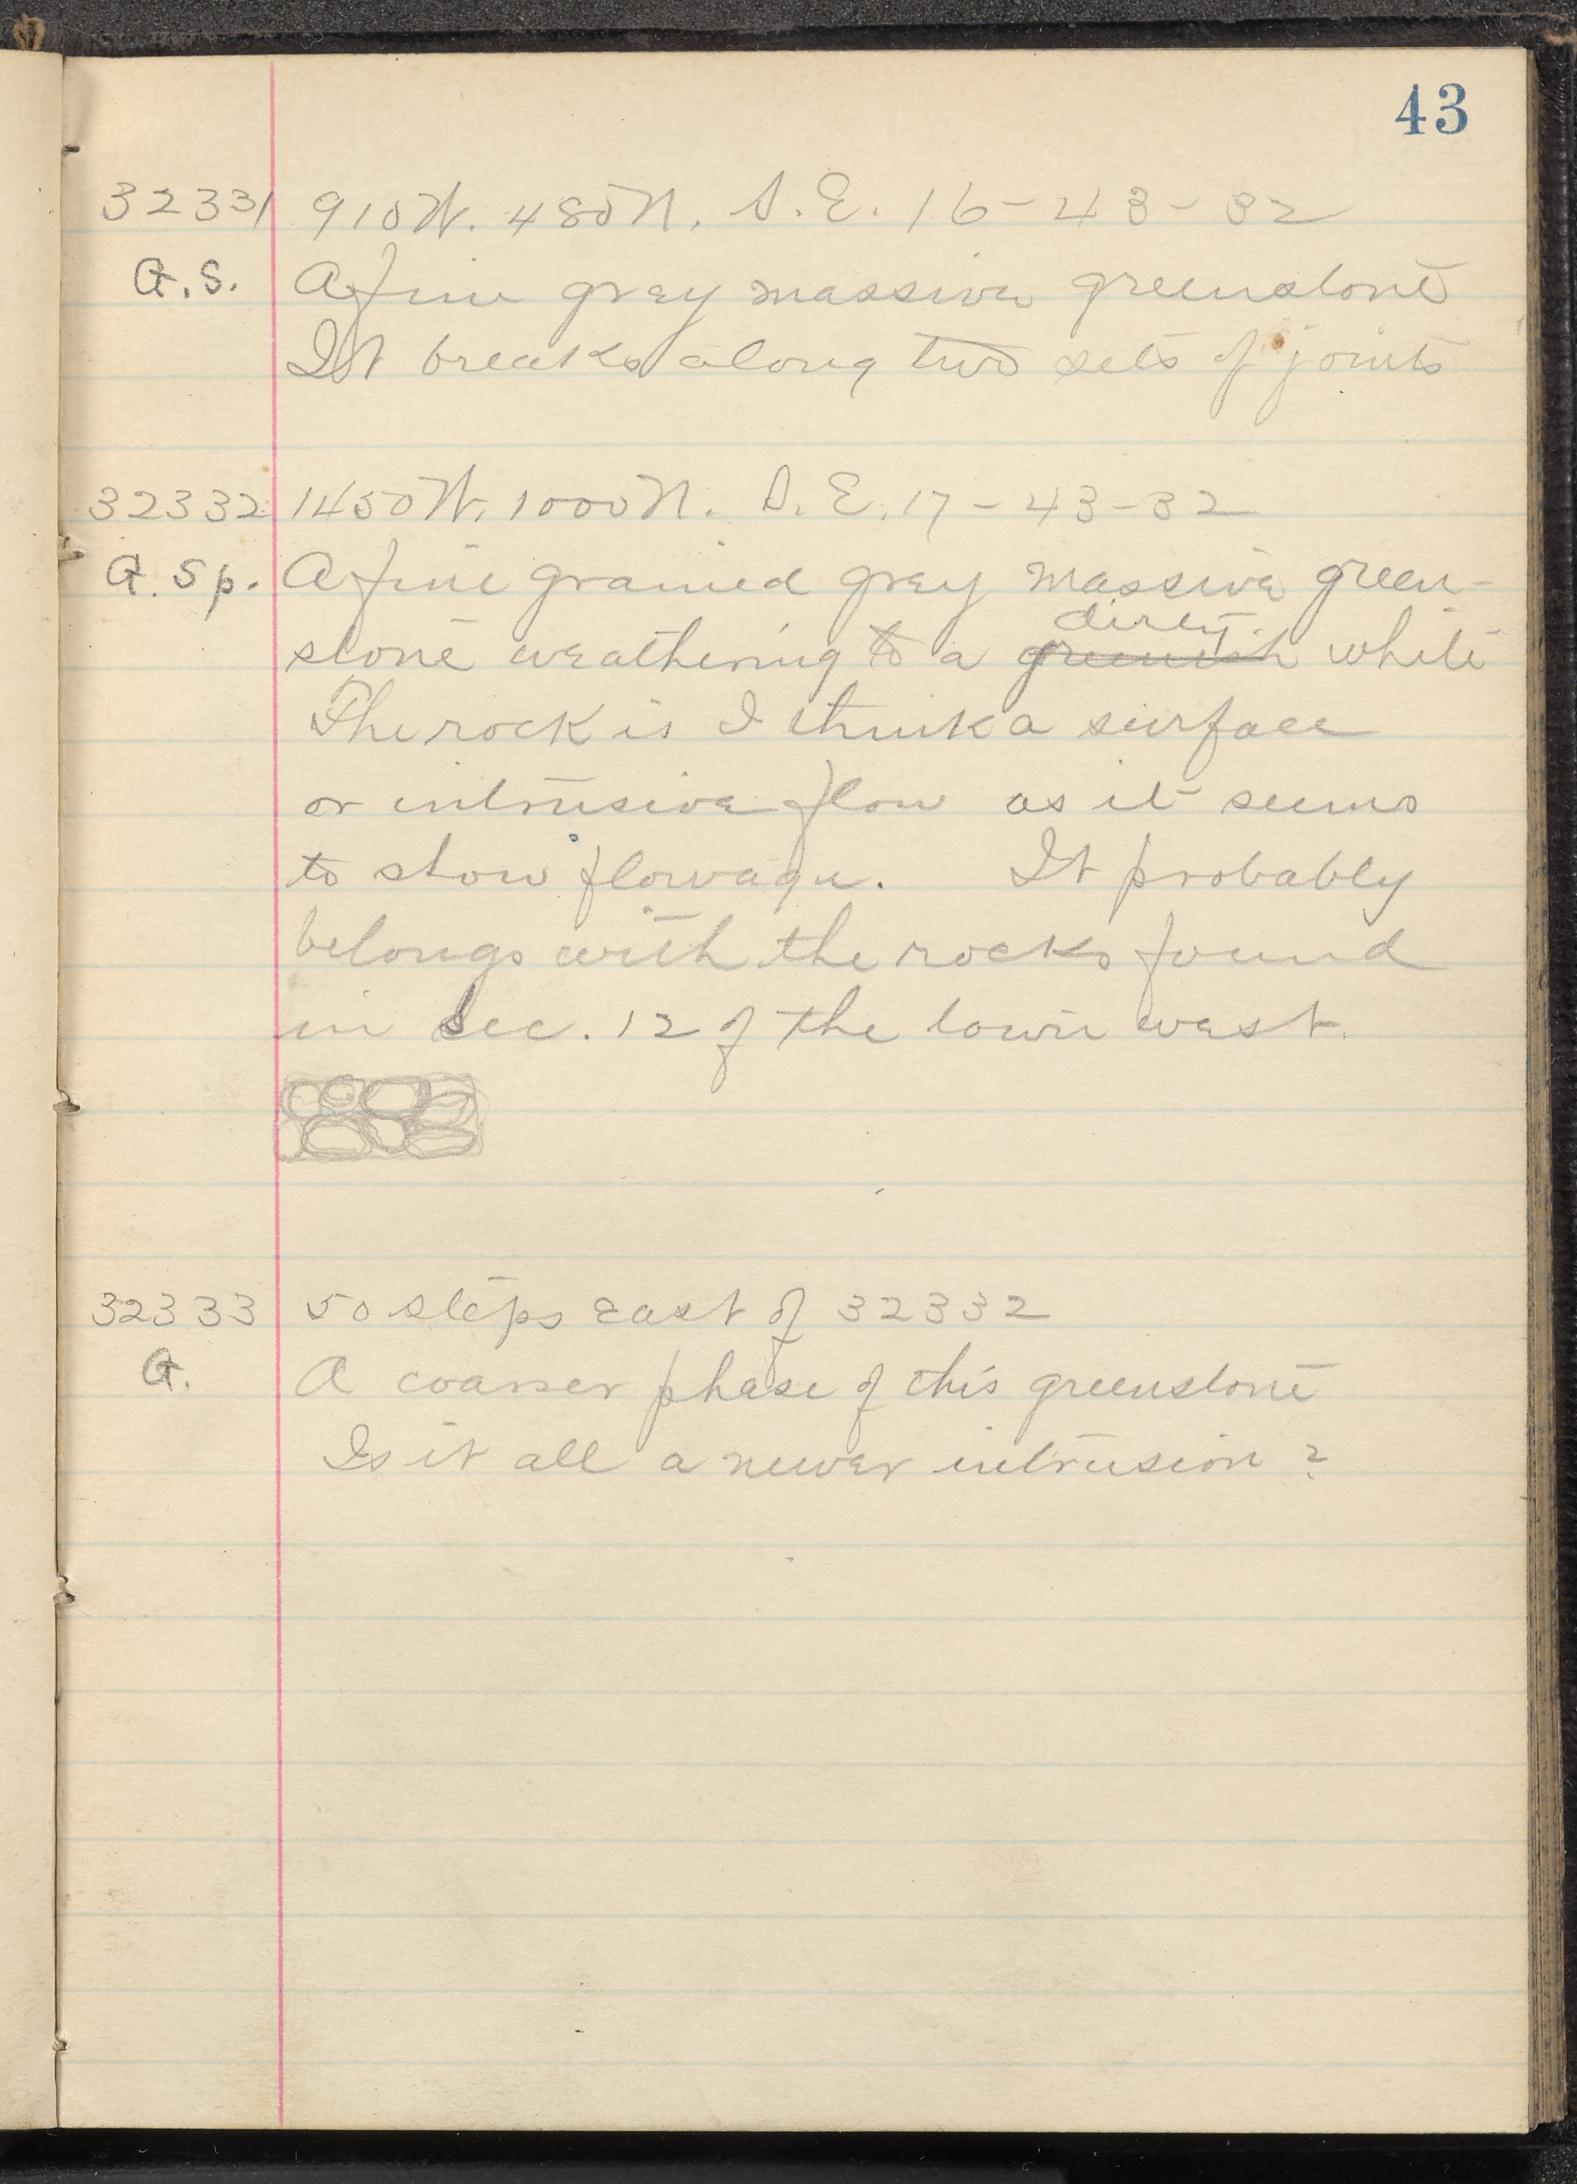 43
32331 910W. 480N. S.E. 16-43-32
G.S. A fine grey massive greenstone
It breaks along two sets of joints
32332 1450W. 1000N. S.E. 17-43-32
G. Sp. A fine grained grey massive green-
dirty
stone weathering to a greenish white
The rock is I think a surface
or intrusive flow as it seems
to show flowage. It probably
belongs with the rocks found
in Sec. 12 of the town west.
32333 50 steps east of 32332
G. A coarser phase of this greenstone
Is it all a newer intrusion?